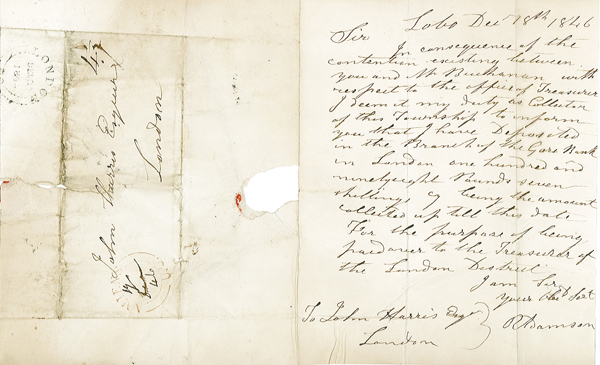 LONDON
John Harris Esquire
London
Lobo Dec 18th 1846
Sir
In consequence of the
contention existing between
you and Mr Buchanan with
respect to the office of Treasurer
I deem it my duty as Collector
of this Township to inform
you that I have Deposited
in the Branch of the Gore Bank
in London one hundred and
ninetyeight Pounds seven
shillings being the amount
collected up till this date
For the purpose of being
paid over to the Treasurer of
the London District
I am Sir
your Obdt Sevt
R Adamson
To John Harris Esqr
London